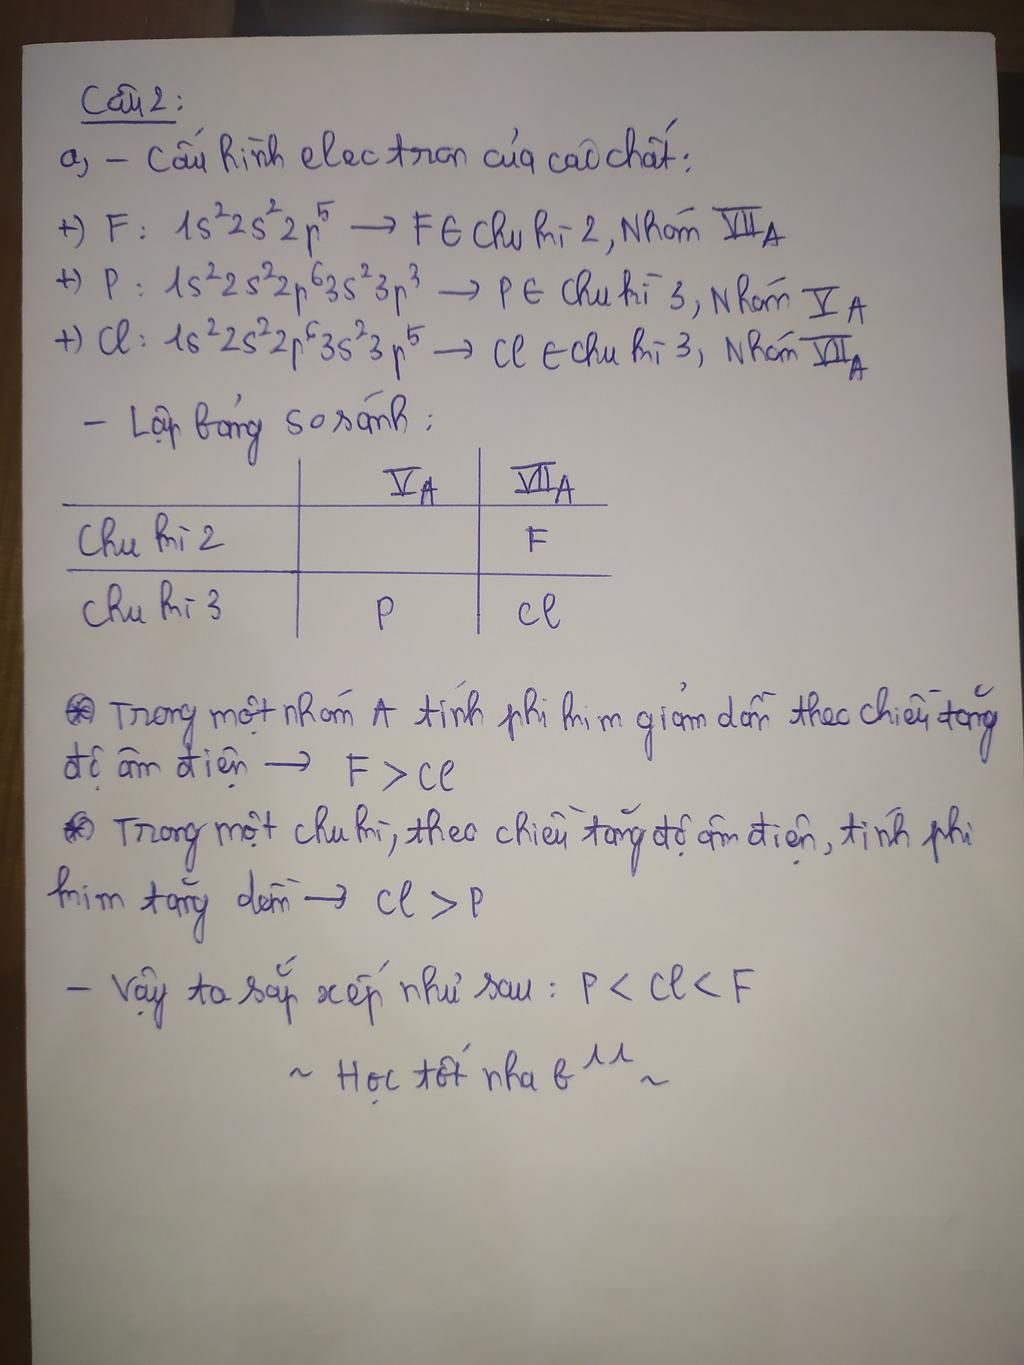 Câu 2:
a, - Cấu hình electron của các chất:
+) F: 1s²2s²2p⁵ → F ∈ chu kì 2, Nhóm VIIA
+) P: 1s²2s²2p⁶3s²3p³ → P ∈ chu kì 3, Nhóm VA
+) Cl: 1s²2s²2p⁶3s²3p⁵ → Cl ∈ chu kì 3, Nhóm VIIA
- Lập bảng so sánh:
VA VIIA
Chu kì 2 F
Chu kì 3 P Cl
* Trong một nhóm A tính phi kim giảm dần theo chiều tăng
độ âm điện → F > Cl
* Trong một chu kì, theo chiều tăng độ âm điện, tính phi
kim tăng dần → Cl > P
- Vậy ta sắp xếp như sau: P < Cl < F
~ Học tốt nha b ^^ ~